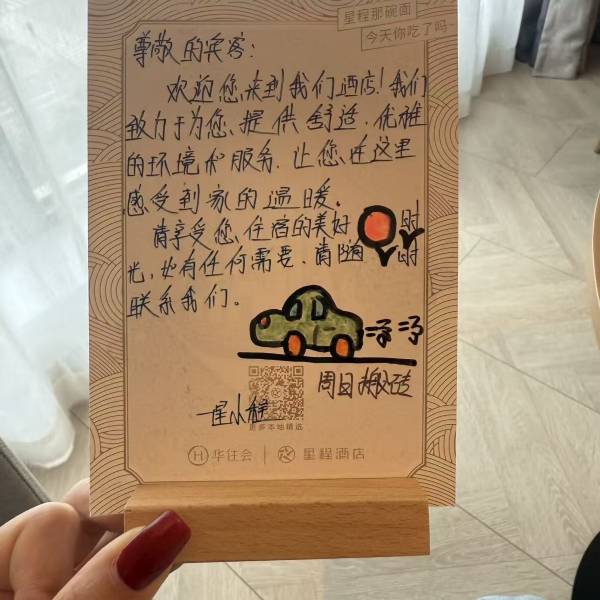 星程那碗面
今天你吃了吗
尊敬的宾客：
欢迎您来到我们酒店！我们
致力于为您提供舒适、优雅
的环境和服务，让您在这里
感受到家的温暖。
请享受您住宿的美好时
光，如有任何需要，请随时
联系我们。
周日搬砖
一星小程
更多本地精选
华住会 | 星程酒店